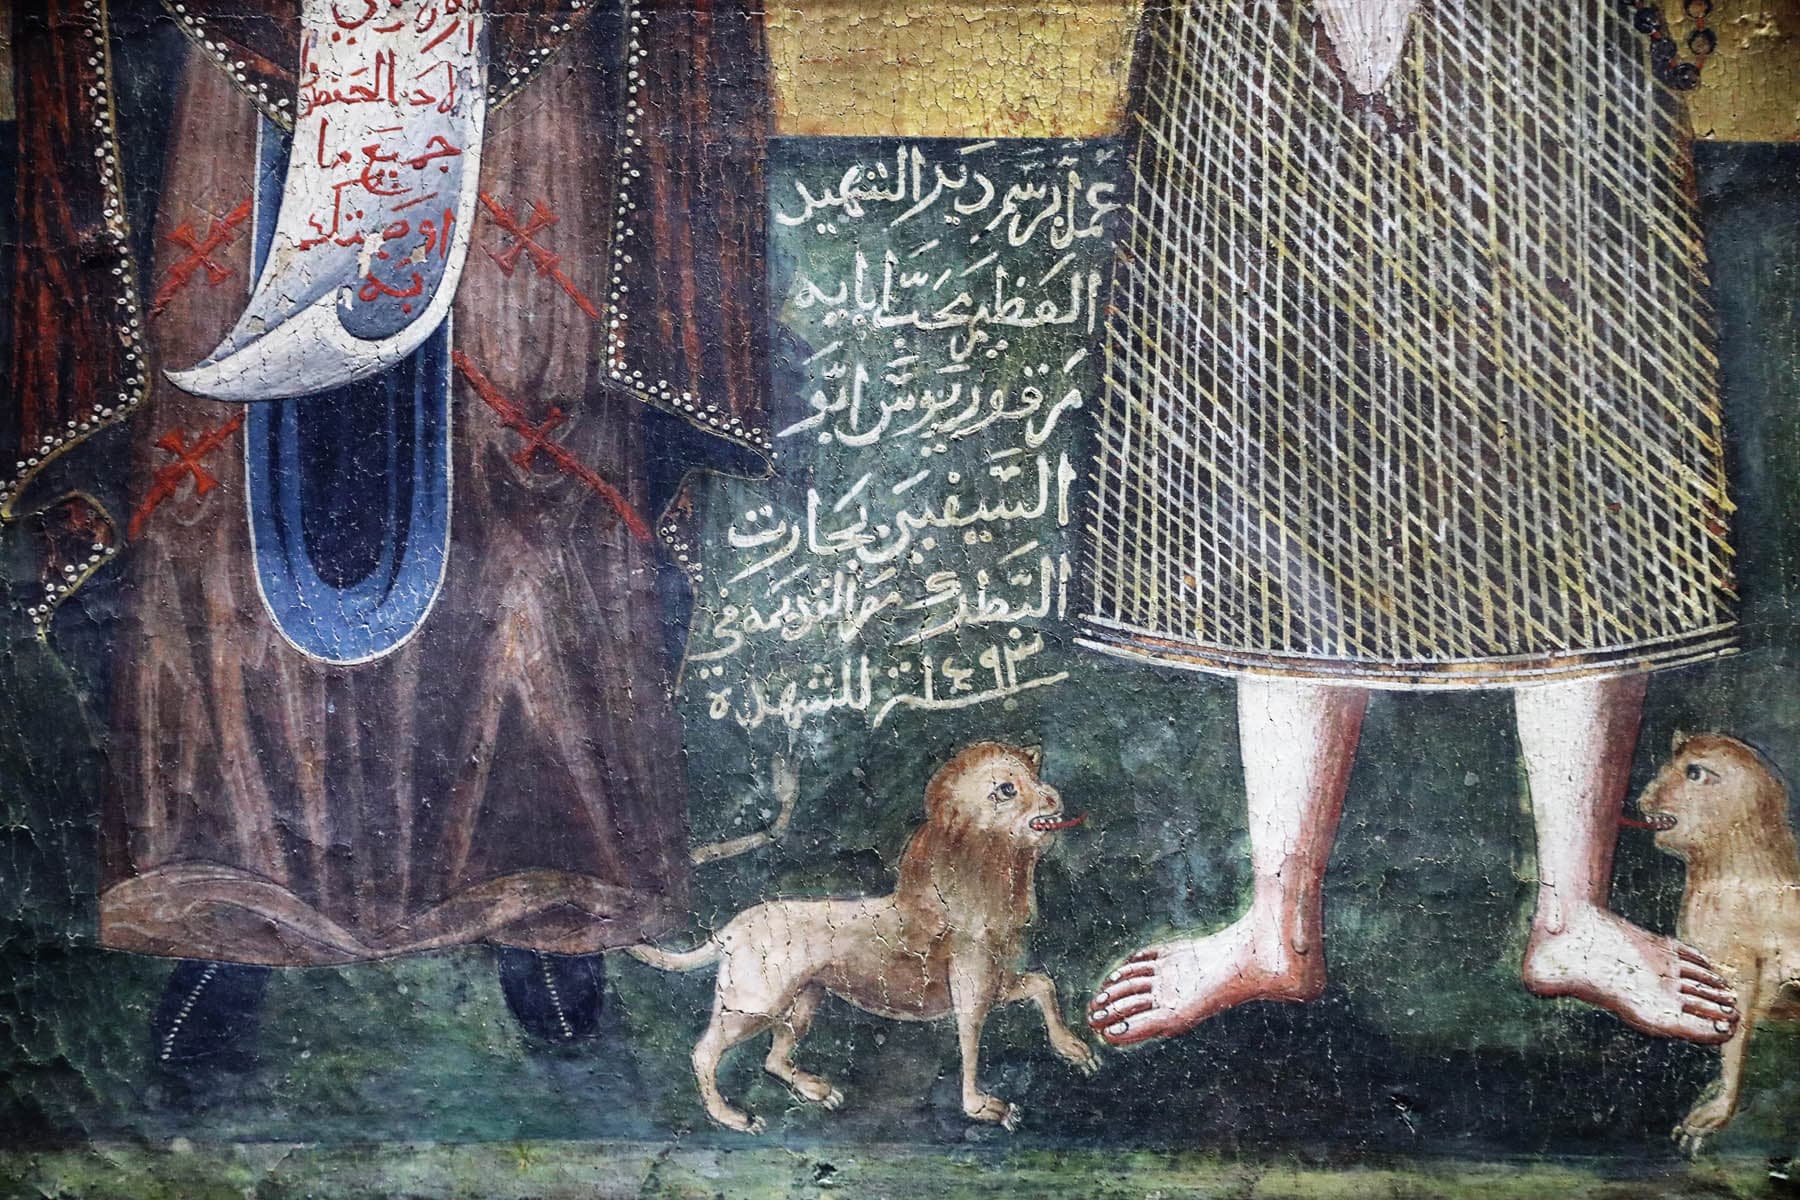 الحفظ
جميع ما
اوصيتك
به
عمل برسم دير الشهيد
العظيم محب ابايه
مرقوريوس ابو
السيفين بحارت
البطرك مصر القديمه في
سنة ١٤٩٣ للشهدا